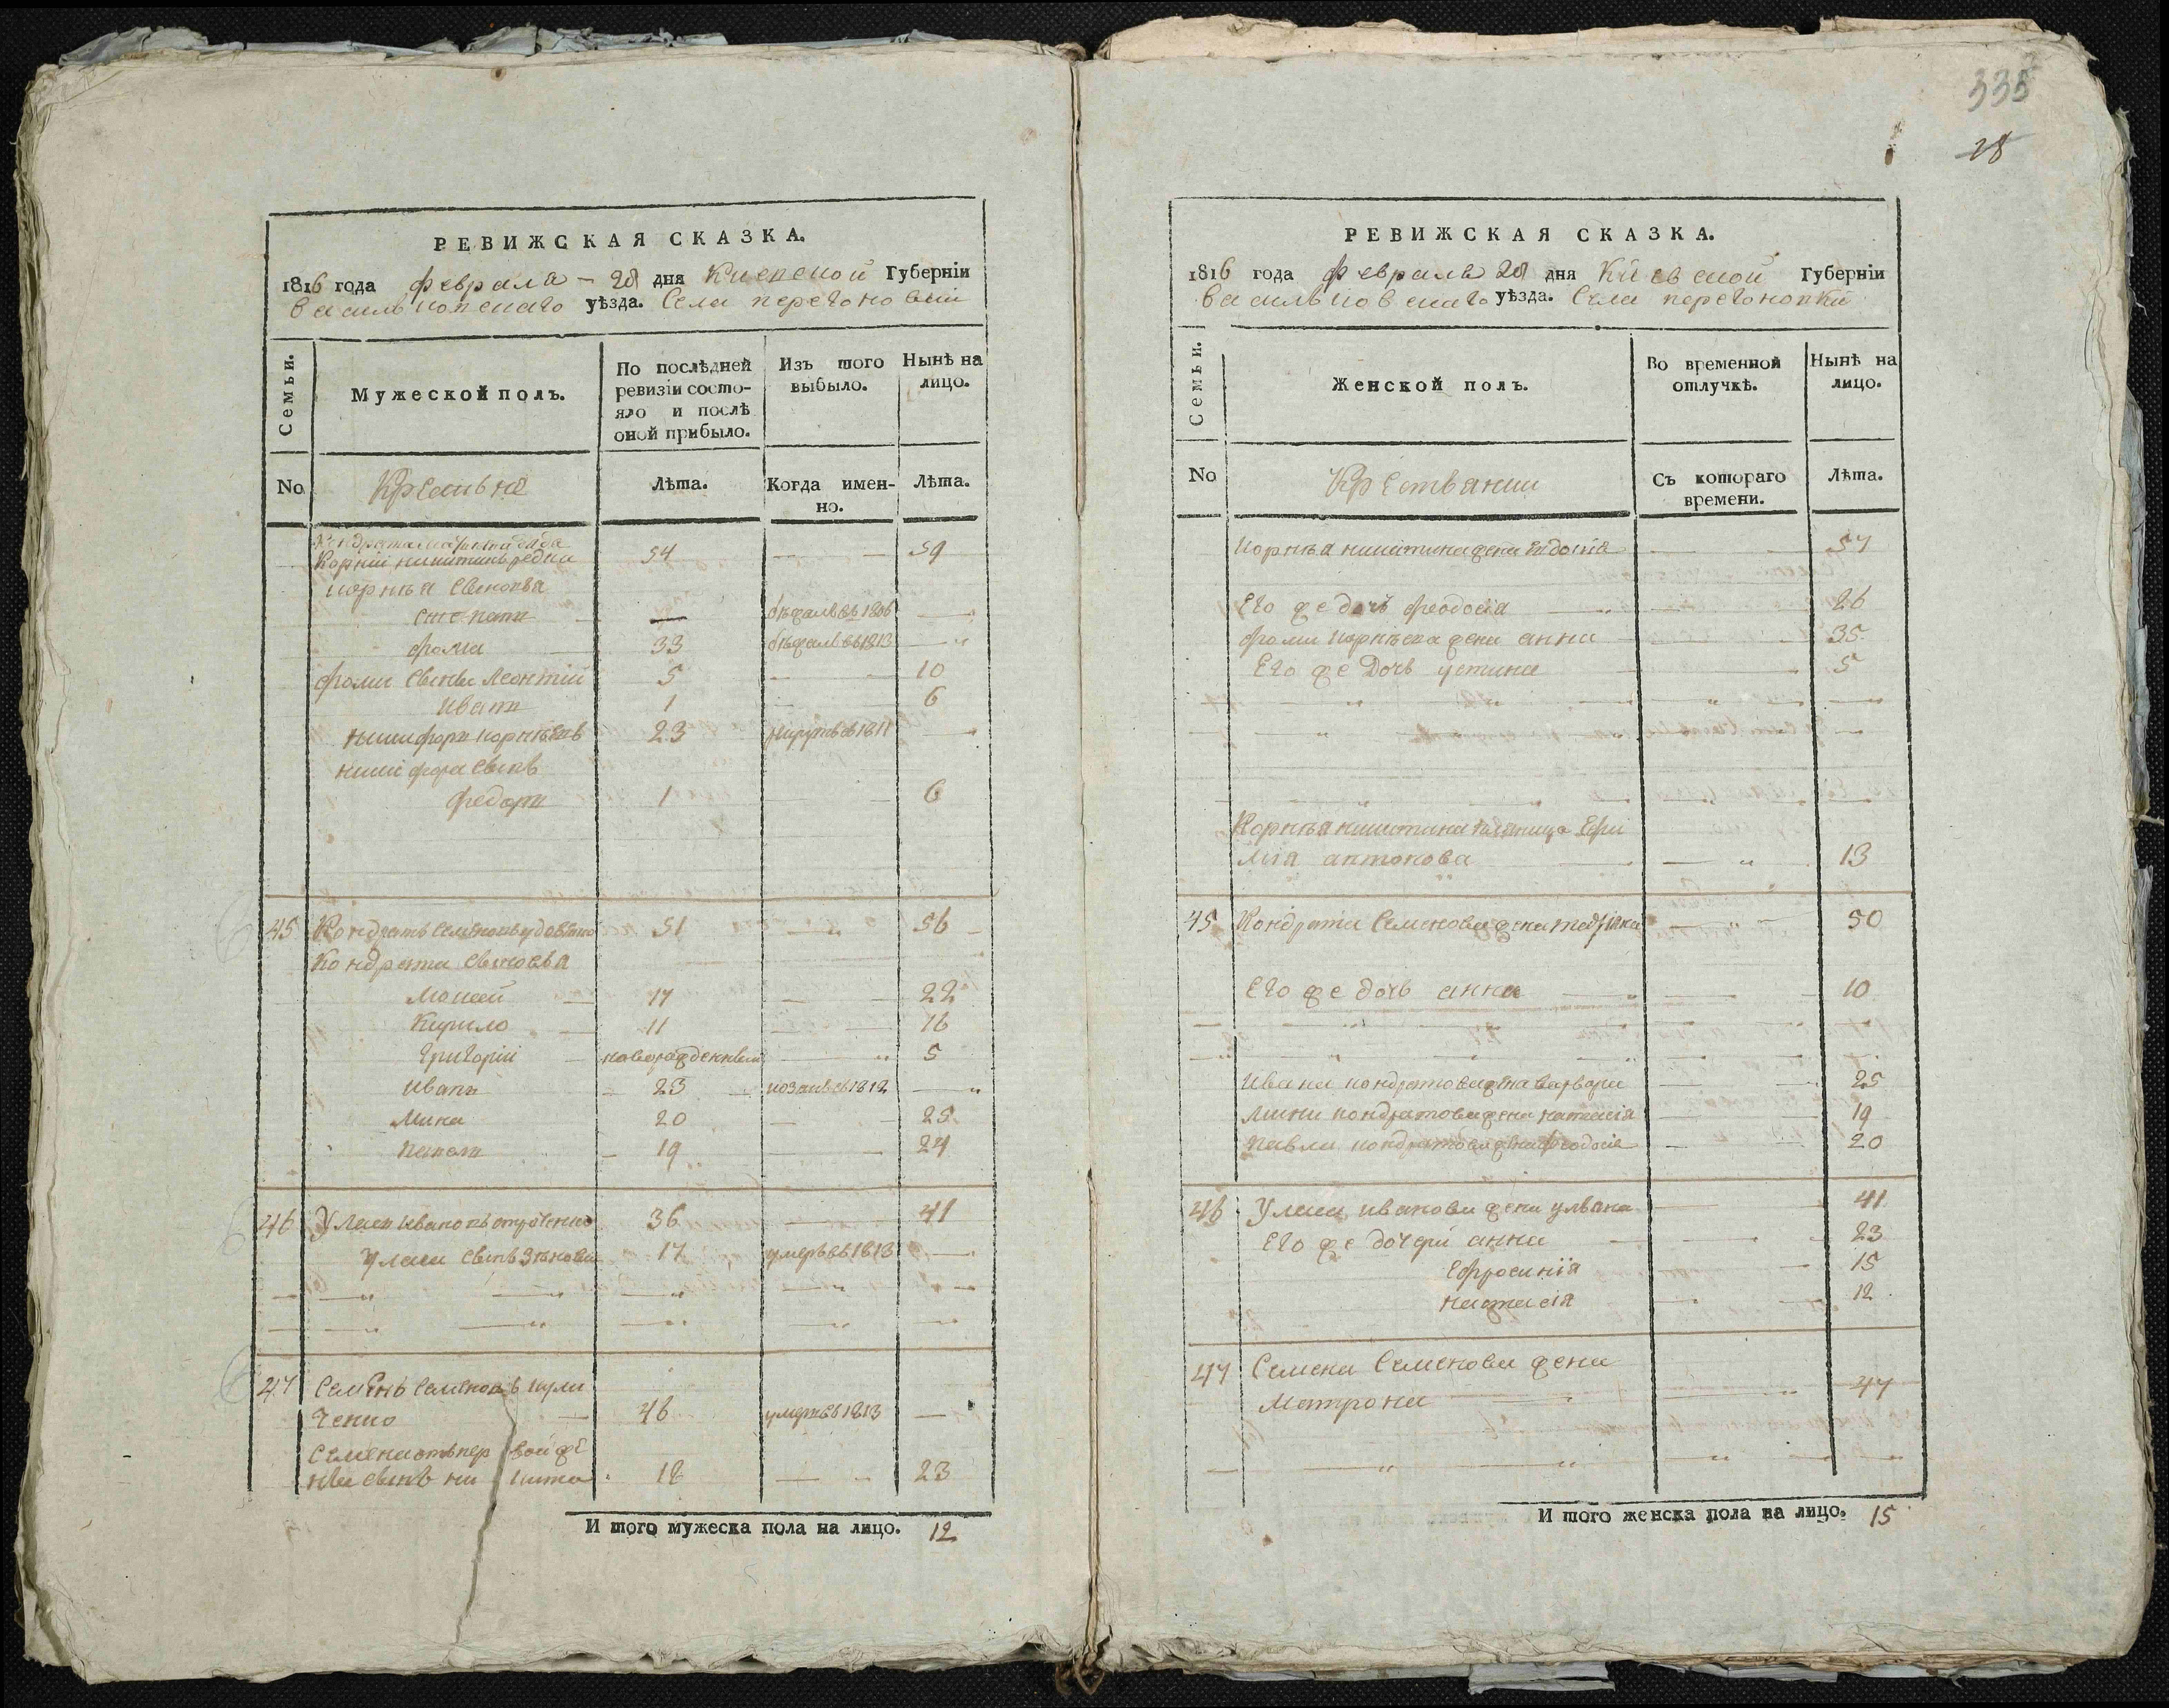 335
28
РЕВИЖСКАЯ СКАЗКА.
1816 года февраля – 28 дня Киевской Губерніи
васильковскаго уѣзда. Села перегоновки
Семьи.
Мужеской полъ.
По послѣдней ревизіи состояло и послѣ оной прибыло.
Изъ того выбыло.
Нынѣ на лицо.
No
Крестьяне
Лѣта.
Когда именно.
Лѣта.
Корній никитинъ 54 — — 59
корнѣя сыновья
степанъ — бѣжалъ въ 1806 —
фома 33 бѣжалъ въ 1813 —
фомы сыны Леонтій 5 — — 10
иванъ 1 6
никифоръ корнѣевъ 23 въ 1811 —
никифора сынъ
федоръ 1 — 6
45 Кондратъ семеновъ 51 — 56
Кондрата сыновья
Моисей — 17 — — 22
Кирило — 11 — — 16
Григорій — новорожденный — 5
иванъ — 23 въ 1812 —
Мина 20 — — 25
павелъ — 19 — — 24
46 Уласъ ивановъ 36 — 41
Уласа сынъ 17 умеръ въ 1813 —
47 Семенъ семеновъ кули
ченко — 46 умеръ въ 1813 —
Семена отъ первой же
ны сынъ никита 18 — 23
И того мужеска пола на лицо. 12
РЕВИЖСКАЯ СКАЗКА.
1816 года февраля 28 дня Кіевской Губерніи
васильковскаго уѣзда. Села перегоновки
Семьи.
Женской полъ.
Во временной отлучкѣ.
Нынѣ на лицо.
No
Крестьянки
Съ котораго времени.
Лѣта.
корнѣя никитина жена 57
Его же дочь феодосія — — 26
фомы корнѣева жена анна — 35
Его же Дочь устина — 5
Корнѣя никитина Ефи
мія антонова — — 13
45 Кондрата Семенова жена — 50
Его же дочь анна — — 10
ивана кондратова жена варвара — 25
мины кондратова жена настасія — 19
павла кондратова жена феодосія — 20
46 Уласа иванова жена уляна — 41
Его же дочери анна — 23
Ефросинія — 15
настасія — 12
47 Семена Семенова жена
Матрона — — 47
И того женска пола на лицо. 15